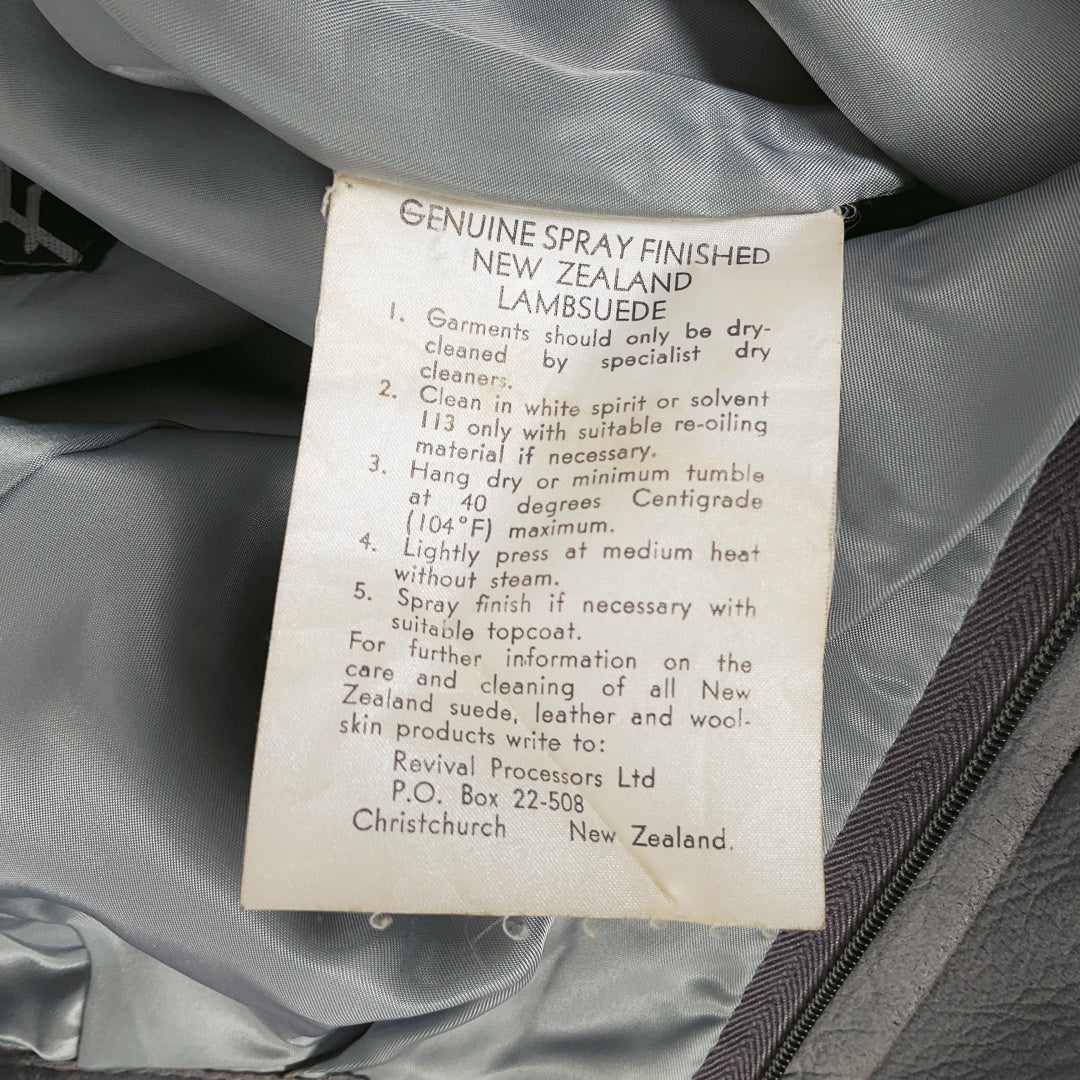 GENUINE SPRAY FINISHED
NEW ZEALAND
LAMBSUEDE
1. Garments should only be dry-
cleaned by specialist dry
cleaners.
2. Clean in white spirit or solvent
113 only with suitable re-oiling
material if necessary.
3. Hang dry or minimum tumble
at 40 degrees Centigrade
(104°F) maximum.
4. Lightly press at medium heat
without steam.
5. Spray finish if necessary with
suitable topcoat.
For further information on the
care and cleaning of all New
Zealand suede, leather and wool-
skin products write to:
Revival Processors Ltd
P.O. Box 22-508
Christchurch New Zealand.